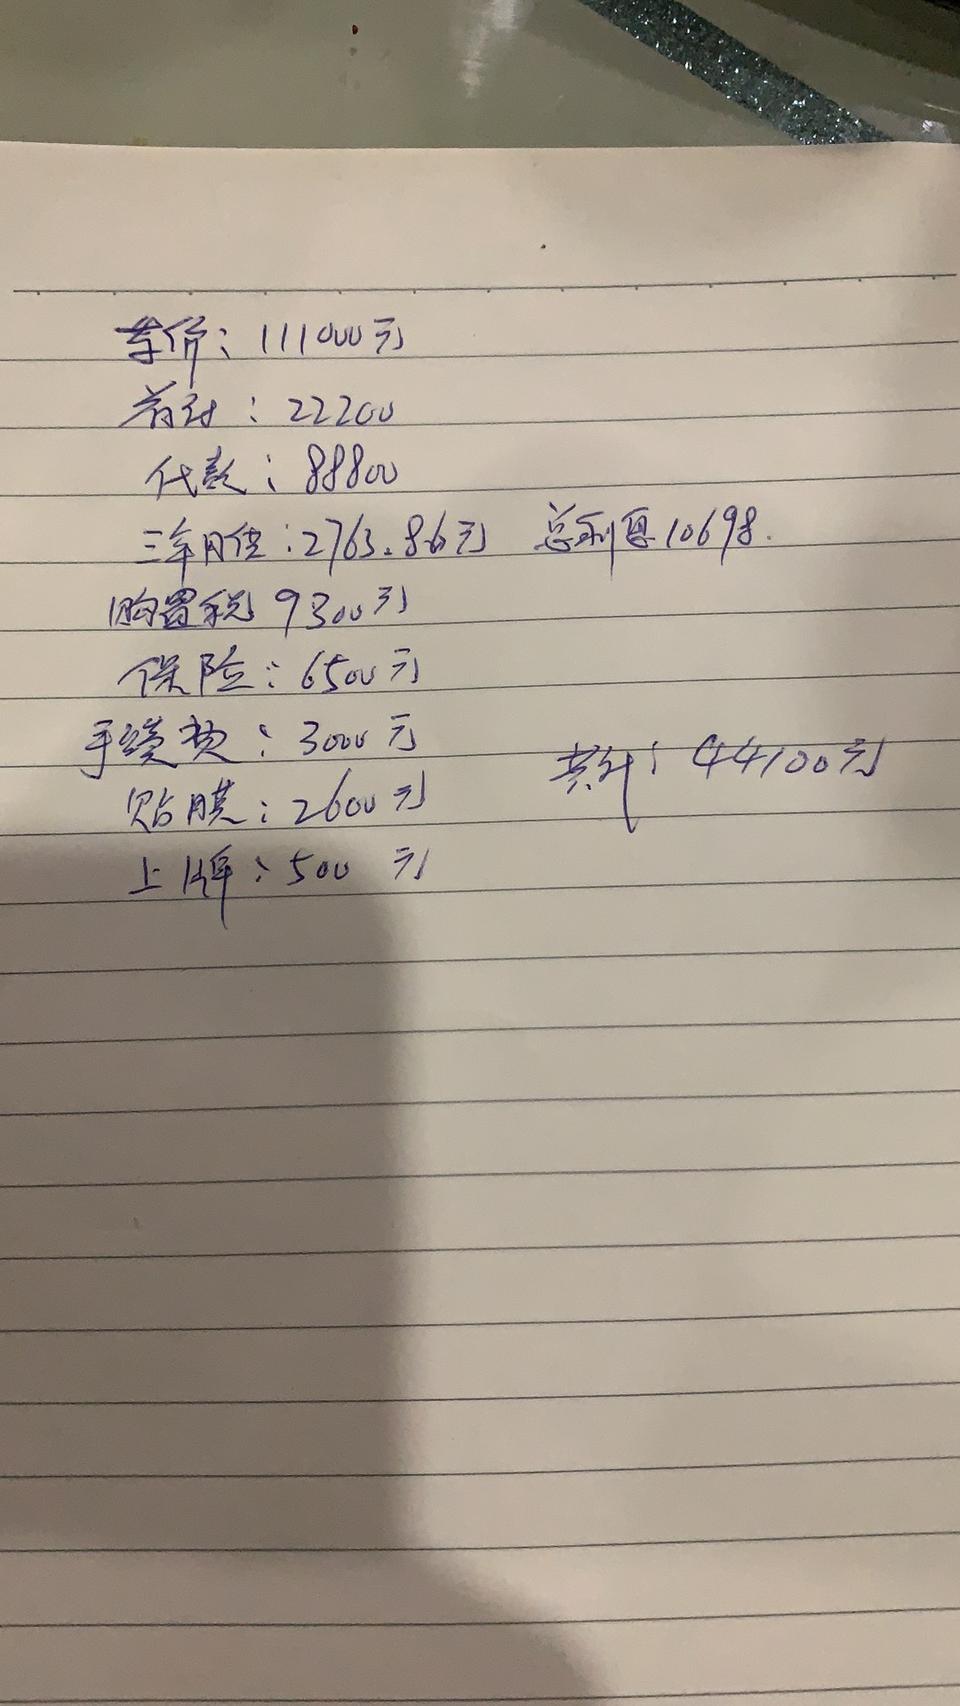 车价：111000元
首付：22200
代款：88800
三年月供：2763.86元 总利息10698.
购置税 9300元
保险：6500元
手续费：3000元
共计：44100元
贴膜：2600元
上牌：500元